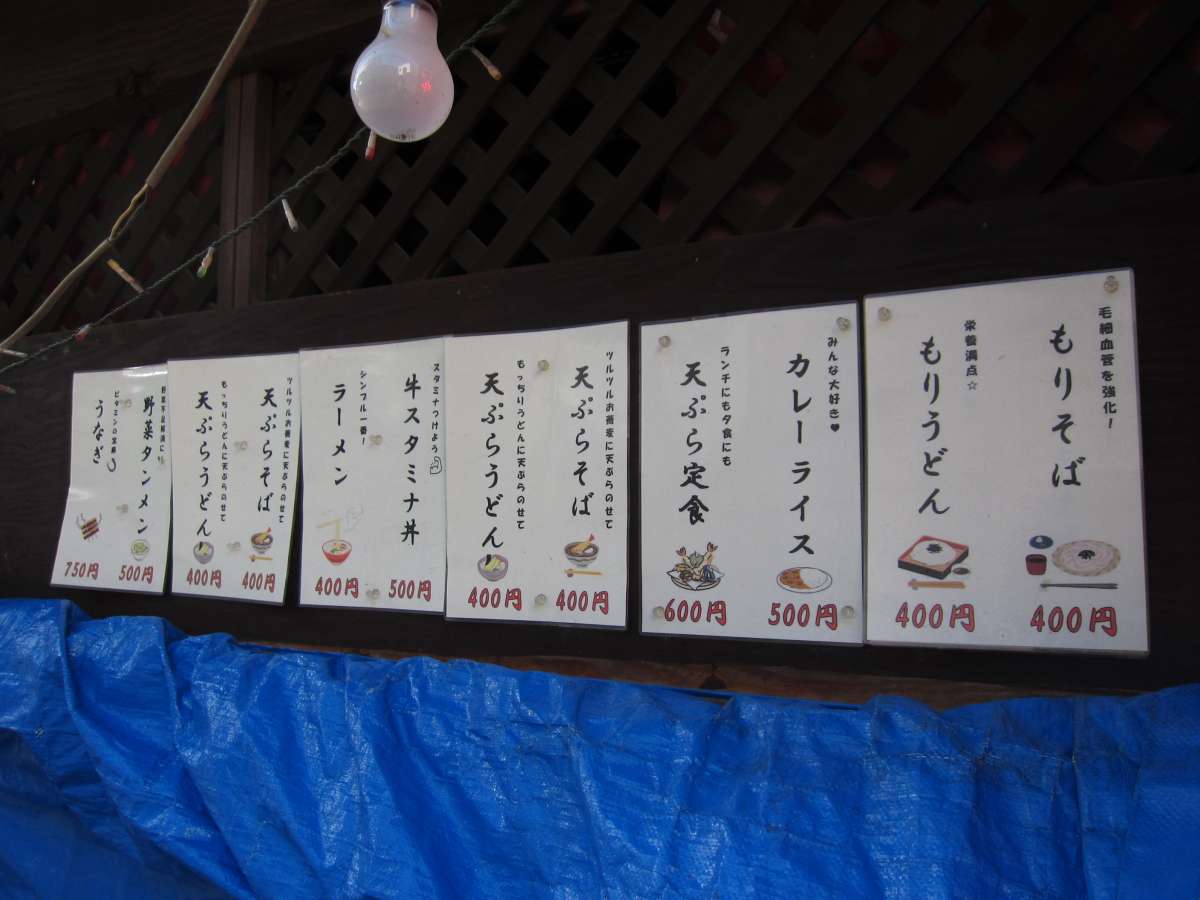 毛細血管を強化!
もりそば
400円
栄養満点☆
もりうどん
400円
みんな大好き♥
カレーライス
500円
ランチにも夕食にも
天ぷら定食
600円
ツルツルお蕎麦に天ぷらのせて
天ぷらそば
400円
もっちりうどんに天ぷらのせて
天ぷらうどん
400円
スタミナつけよう
牛スタミナ丼
500円
シンプル一番!
ラーメン
400円
ツルツルお蕎麦に天ぷらのせて
天ぷらそば
400円
もっちりうどんに天ぷらのせて
天ぷらうどん
400円
野菜不足解消に
野菜タンメン
500円
ビタミンの宝庫
うなぎ
750円